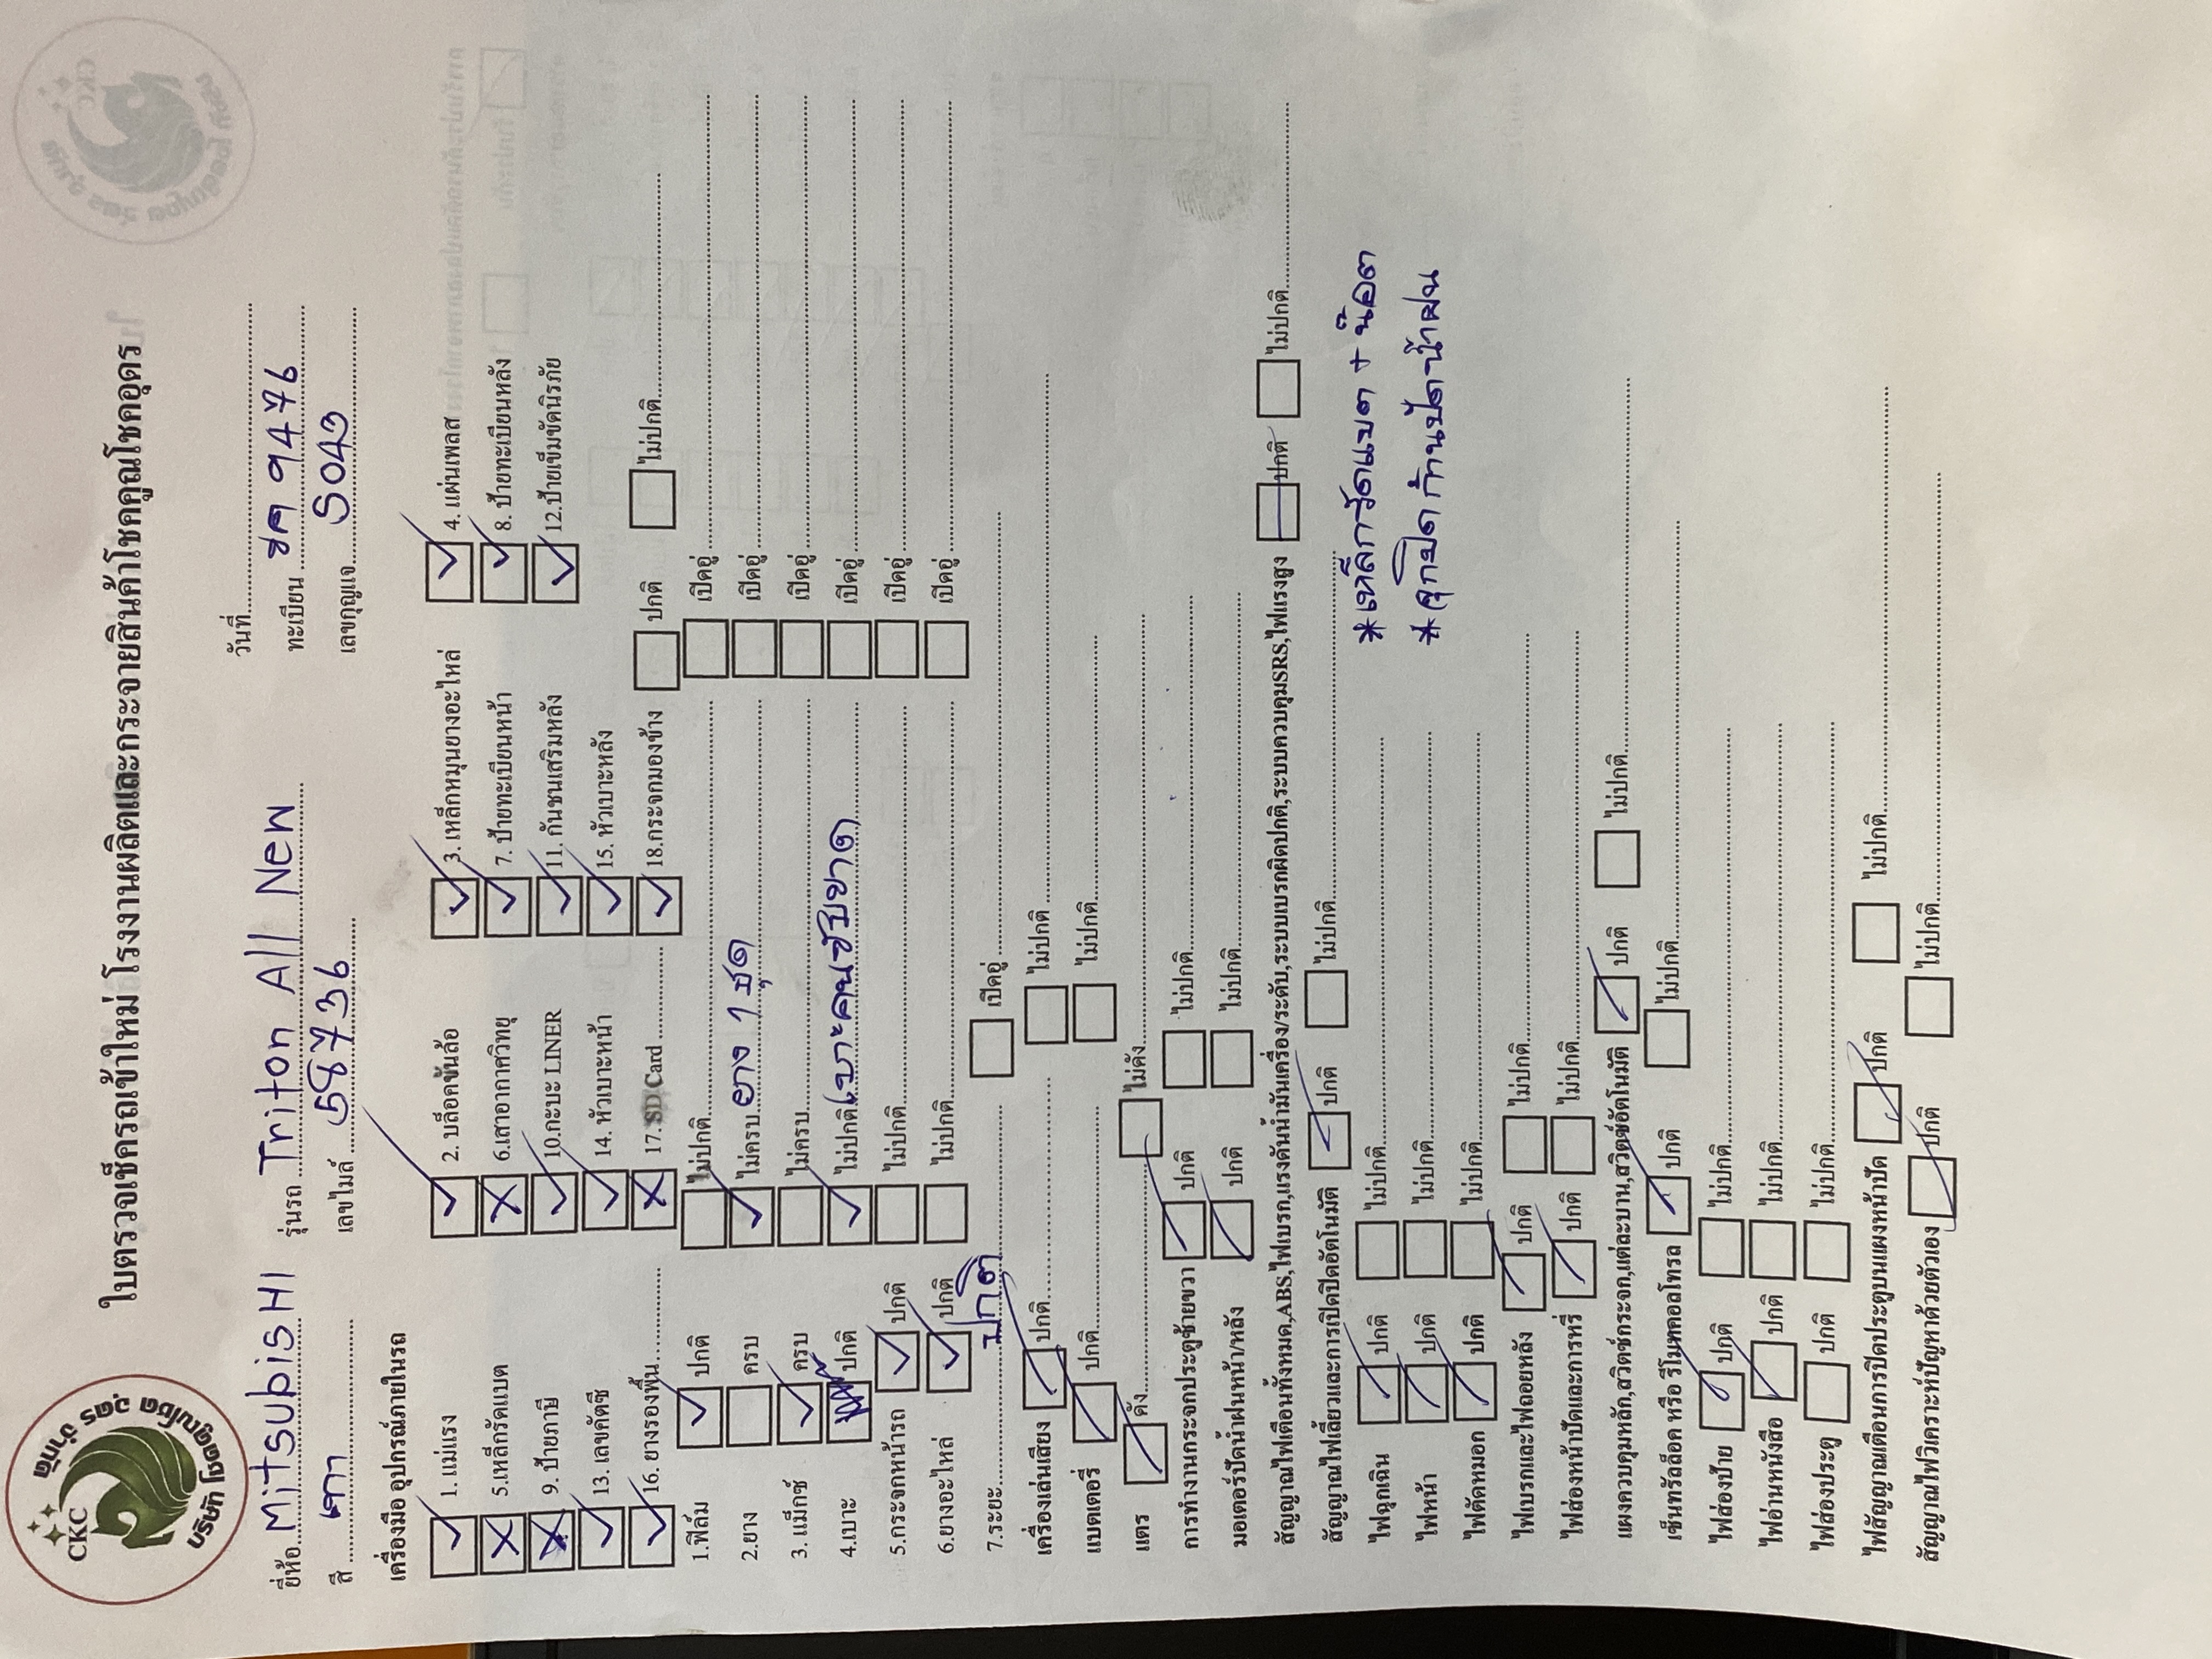 บริษัท โชคคูณโชค อุดร จำกัด
CKC
ใบตรวจเช็ครถเข้าใหม่โรงงานผลิตและกระจายสินค้าโชคคูณโชคอุดร
วันที่
ยี่ห้อ MitsubisHI รุ่นรถ Triton All New ทะเบียน ขค 9476
สี เทา เลขไมล์ 58736 เลขกุญแจ S043
เครื่องมือ อุปกรณ์ภายในรถ
1. แม่แรง 2. บล็อคขันล้อ 3. เหล็กหมุนยางอะไหล่ 4. แผ่นเพลส
5.เหล็กรัดแบต 6.เสาอากาศวิทยุ 7. ป้ายทะเบียนหน้า 8. ป้ายทะเบียนหลัง
9. ป้ายภาษี 10.กะบะ LINER 11. กันชนเสริมหลัง 12.ป้ายเข็มขัดนิรภัย
13. เลขคัตซี 14. หัวเบาะหน้า 15. หัวเบาะหลัง
16. ยางรองพื้น 17. SD Card 18.กระจกมองข้าง ปกติ ไม่ปกติ
1.ฟิล์ม ปกติ ไม่ปกติ เปิดอู่
2.ยาง ครบ ไม่ครบ ยาง 1 ชุด เปิดอู่
3. แม็กซ์ ครบ ไม่ครบ เปิดอู่
4.เบาะ ปกติ ไม่ปกติ เบาะคนขับขาด เปิดอู่
5.กระจกหน้ารถ ปกติ ไม่ปกติ เปิดอู่
6.ยางอะไหล่ ปกติ ไม่ปกติ เปิดอู่
7.ระยะ ปกติ เปิดอู่
เครื่องเล่นเสียง ปกติ ไม่ปกติ
แบตเตอรี่ ปกติ ไม่ปกติ
แตร ดัง ไม่ดัง
การทำงานกระจกประตูซ้ายขวา ปกติ ไม่ปกติ
มอเตอร์ปัดน้ำฝนหน้า/หลัง ปกติ ไม่ปกติ
สัญญาณไฟเตือนทั้งหมด,ABS,ไฟเบรก,แรงดันน้ำมันเครื่อง/ระดับ,ระบบเบรกผิดปกติ,ระบบควบคุมSRS,ไฟแรงสูง ปกติ ไม่ปกติ
สัญญาณไฟเลี้ยวและการเปิดปิดอัตโนมัติ ปกติ ไม่ปกติ
ไฟฉุกเฉิน ปกติ ไม่ปกติ
*เหล็กรัดแบต + น็อต
ไฟหน้า ปกติ ไม่ปกติ
*จุกปิดก้านปัดน้ำฝน
ไฟตัดหมอก ปกติ ไม่ปกติ
ไฟเบรกและไฟถอยหลัง ปกติ ไม่ปกติ
ไฟส่องหน้าปัดและการหรี่ ปกติ ไม่ปกติ
แผงควบคุมหลัก,สวิตช์กระจก,แต่ละบาน,สวิตช์อัตโนมัติ ปกติ ไม่ปกติ
เซ็นทรัลล็อค หรือ รีโมทคอลโทรล ปกติ ไม่ปกติ
ไฟส่องป้าย ปกติ ไม่ปกติ
ไฟอ่านหนังสือ ปกติ ไม่ปกติ
ไฟส่องประตู ปกติ ไม่ปกติ
ไฟสัญญาณเตือนการปิดประตูบนแผงหน้าปัด ปกติ ไม่ปกติ
สัญญาณไฟวิเคราะห์ปัญหาด้วยตัวเอง ปกติ ไม่ปกติ